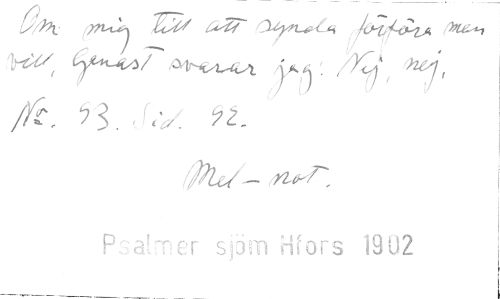 Om mig till att synda förföra man
vill, Genast svarar jag: Nej, nej.
No. 93. Sid. 92.
Mel-not.
Psalmer sjöm Hfors 1902